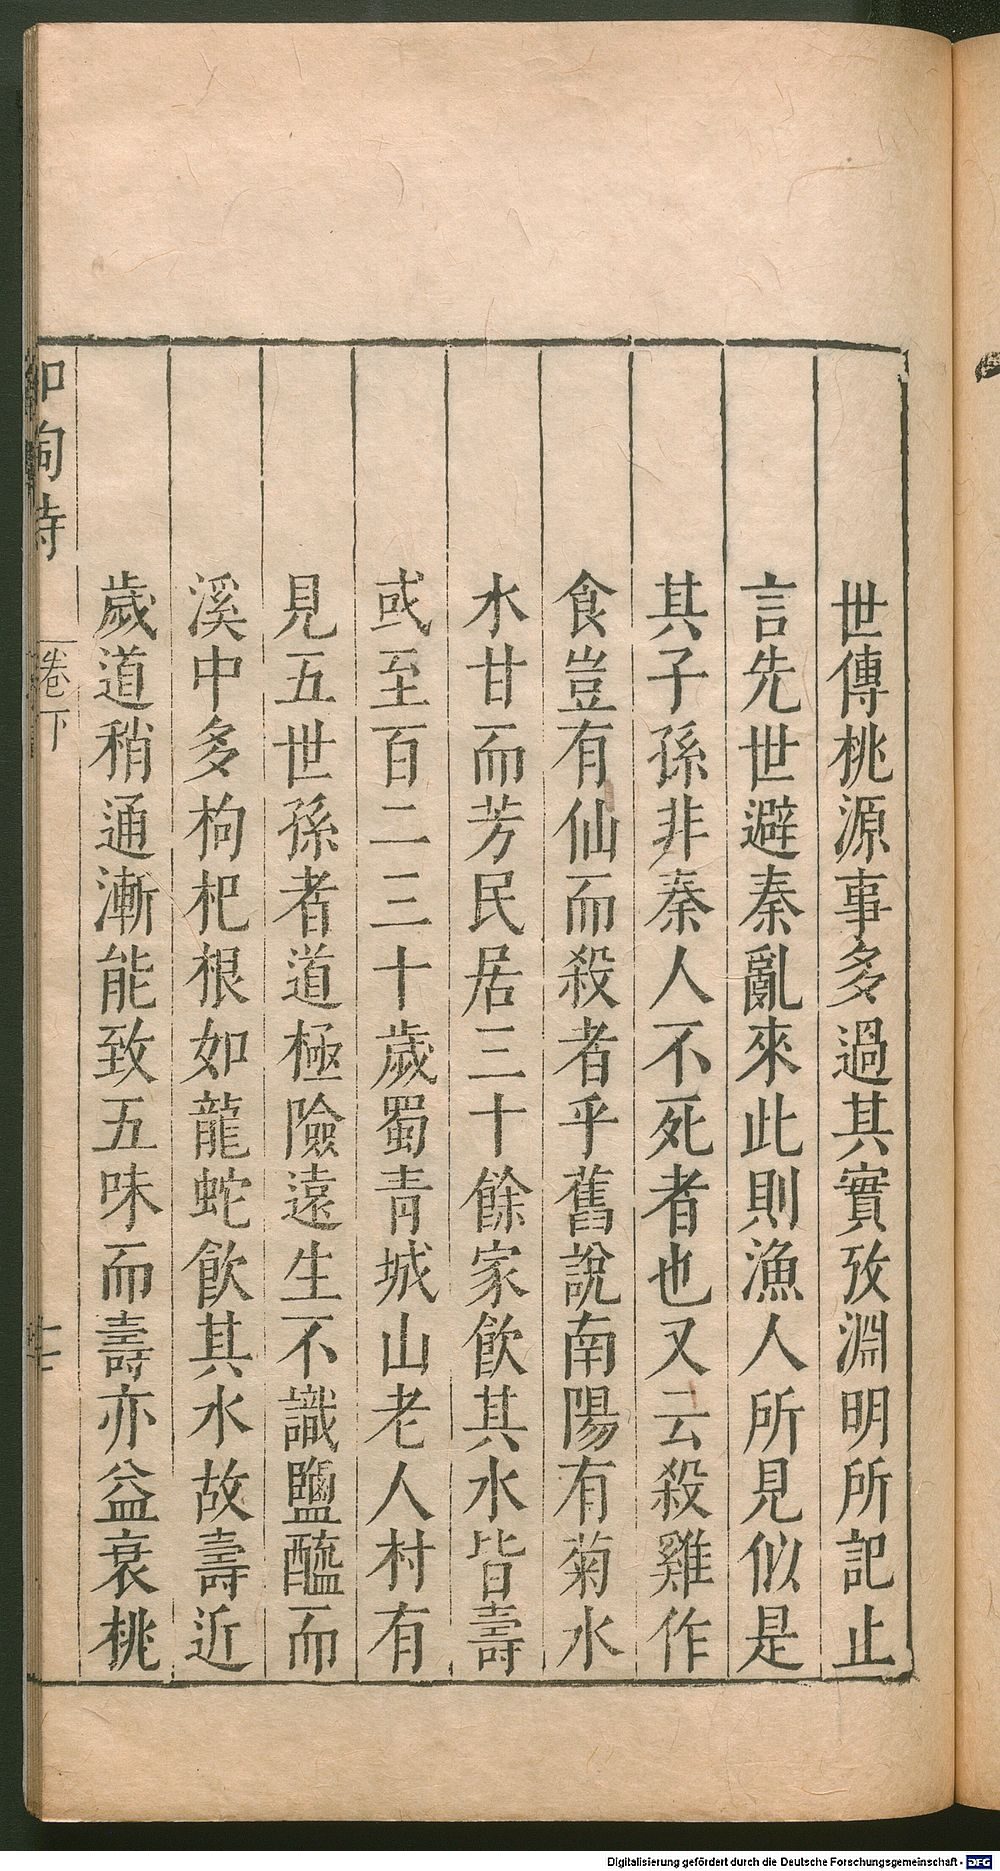 世傳桃源事多過其實攷淵明所記止
言先世避秦亂來此則漁人所見似是
其子孫非秦人不死者也又云殺雞作
食豈有仙而殺者乎舊說南陽有菊水
水甘而芳民居三十餘家飲其水皆壽
或至百二三十歲蜀青城山老人村有
見五世孫者道極險遠生不識鹽醯而
溪中多枸杞根如龍蛇飲其水故壽近
歲道稍通漸能致五味而壽亦益衰桃
和陶詩
卷下
Digitalisierung gefördert durch die Deutsche Forschungsgemeinschaft - DFG